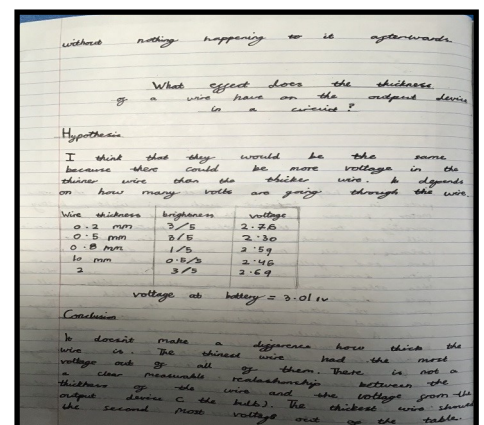 without nothing happening to it afterwards
What effect does the thickness
of a wire have on the output device
in a circuit?
Hypothesis
I think that they would be the same
because there could be more voltage in the
thiner wire than the thicker wire. It depends
on how many volts are going through the wire.
Wire thickness brighness voltage
0.2 mm 3/5 2.76
0.5 mm 3/5 2.30
0.8 mm 1/5 2.59
10 mm 0.5/5 2.46
2 3/5 2.69
voltage at battery = 3.01 v
Conclusion
It doesnt make a difference how thick the
wire is. The thinest wire had the most
voltage out of all of them. There is not a
a clear measurable realashonship between the
thickness of the wire and the voltage from the
output device ( the bulb). The thickest wire showed
the second most voltage out of the table.